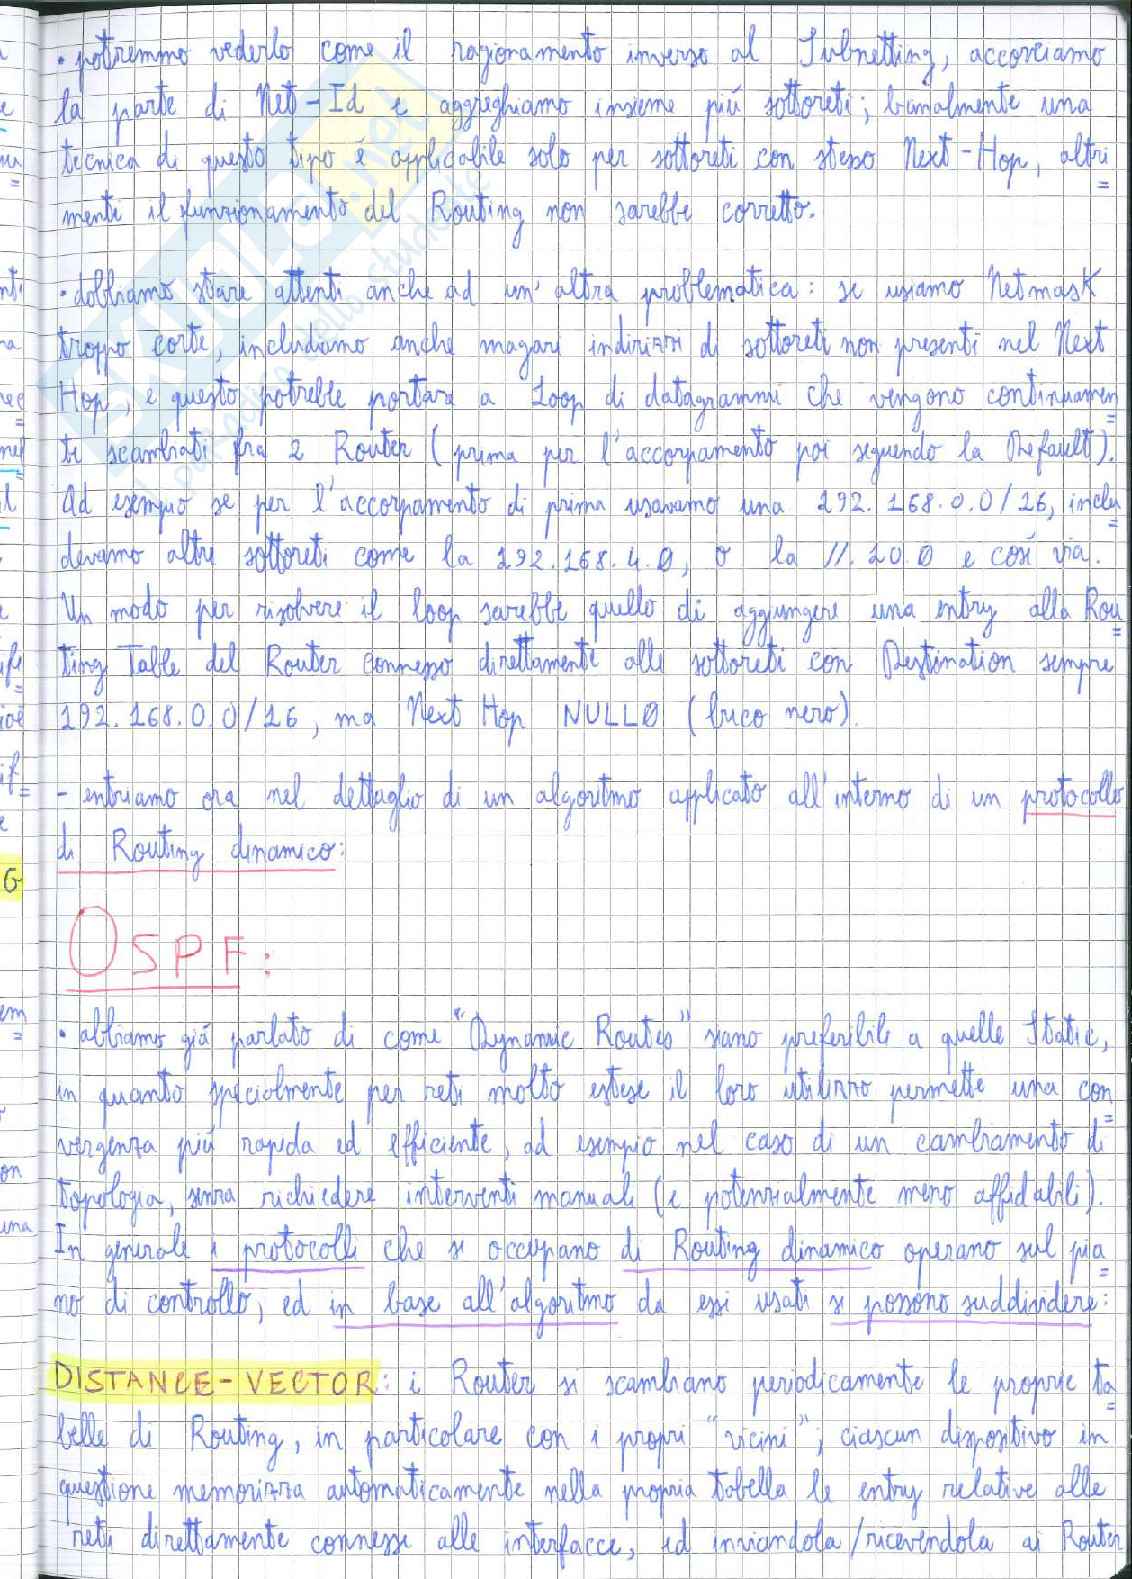 • potremmo vederlo come il ragionamento inverso al Subnetting, accorciamo
la parte di Net-Id e aggreghiamo insieme più sottoreti; banalmente una
tecnica di questo tipo é applicabile solo per sottoreti con stesso Next-Hop, altri
menti il funzionamento del Routing non sarebbe corretto.
• dobbiamo stare attenti anche ad un' altra problematica: se usiamo Netmask
troppo corte, includiamo anche magari indirizzi di sottoreti non presenti nel Next
Hop, e questo potrebbe portare a Loop di datagrammi che vengono continuamen
te scambiati fra 2 Router (prima per l'accorpamento poi seguendo la Default).
Ad esempio se per l'accorpamento di prima usavamo una 192.168.0.0/16, inclu
devamo altre sottoreti come la 192.168.4.0, o la //.20.0 e così via.
Un modo per risolvere il loop sarebbe quello di aggiungere una entry alla Rou
ting Table del Router connesso direttamente alle sottoreti con Destination sempre
192.168.0.0/16, ma Next Hop NULL0 (buco nero).
- entriamo ora nel dettaglio di un algoritmo applicato all'interno di un protocollo
di Routing dinamico:
OSPF:
• abbiamo già parlato di come "Dynamic Routes" siano preferibili a quelle Static,
in quanto specialmente per reti molto estese il loro utilizzo permette una con
vergenza più rapida ed efficiente, ad esempio nel caso di un cambiamento di
topologia, senza richiedere interventi manuali (e potenzialmente meno affidabili).
In generale i protocolli che si occupano di Routing dinamico operano sul pia
no di controllo, ed in base all'algoritmo da essi usati si possono suddividere:
DISTANCE-VECTOR: i Router si scambiano periodicamente le proprie ta
belle di Routing, in particolare con i propri "vicini"; ciascun dispositivo in
questione memorizza automaticamente nella propria tabella le entry relative alle
reti direttamente connesse alle interfacce, ed inviandola/ricevendola ai Router